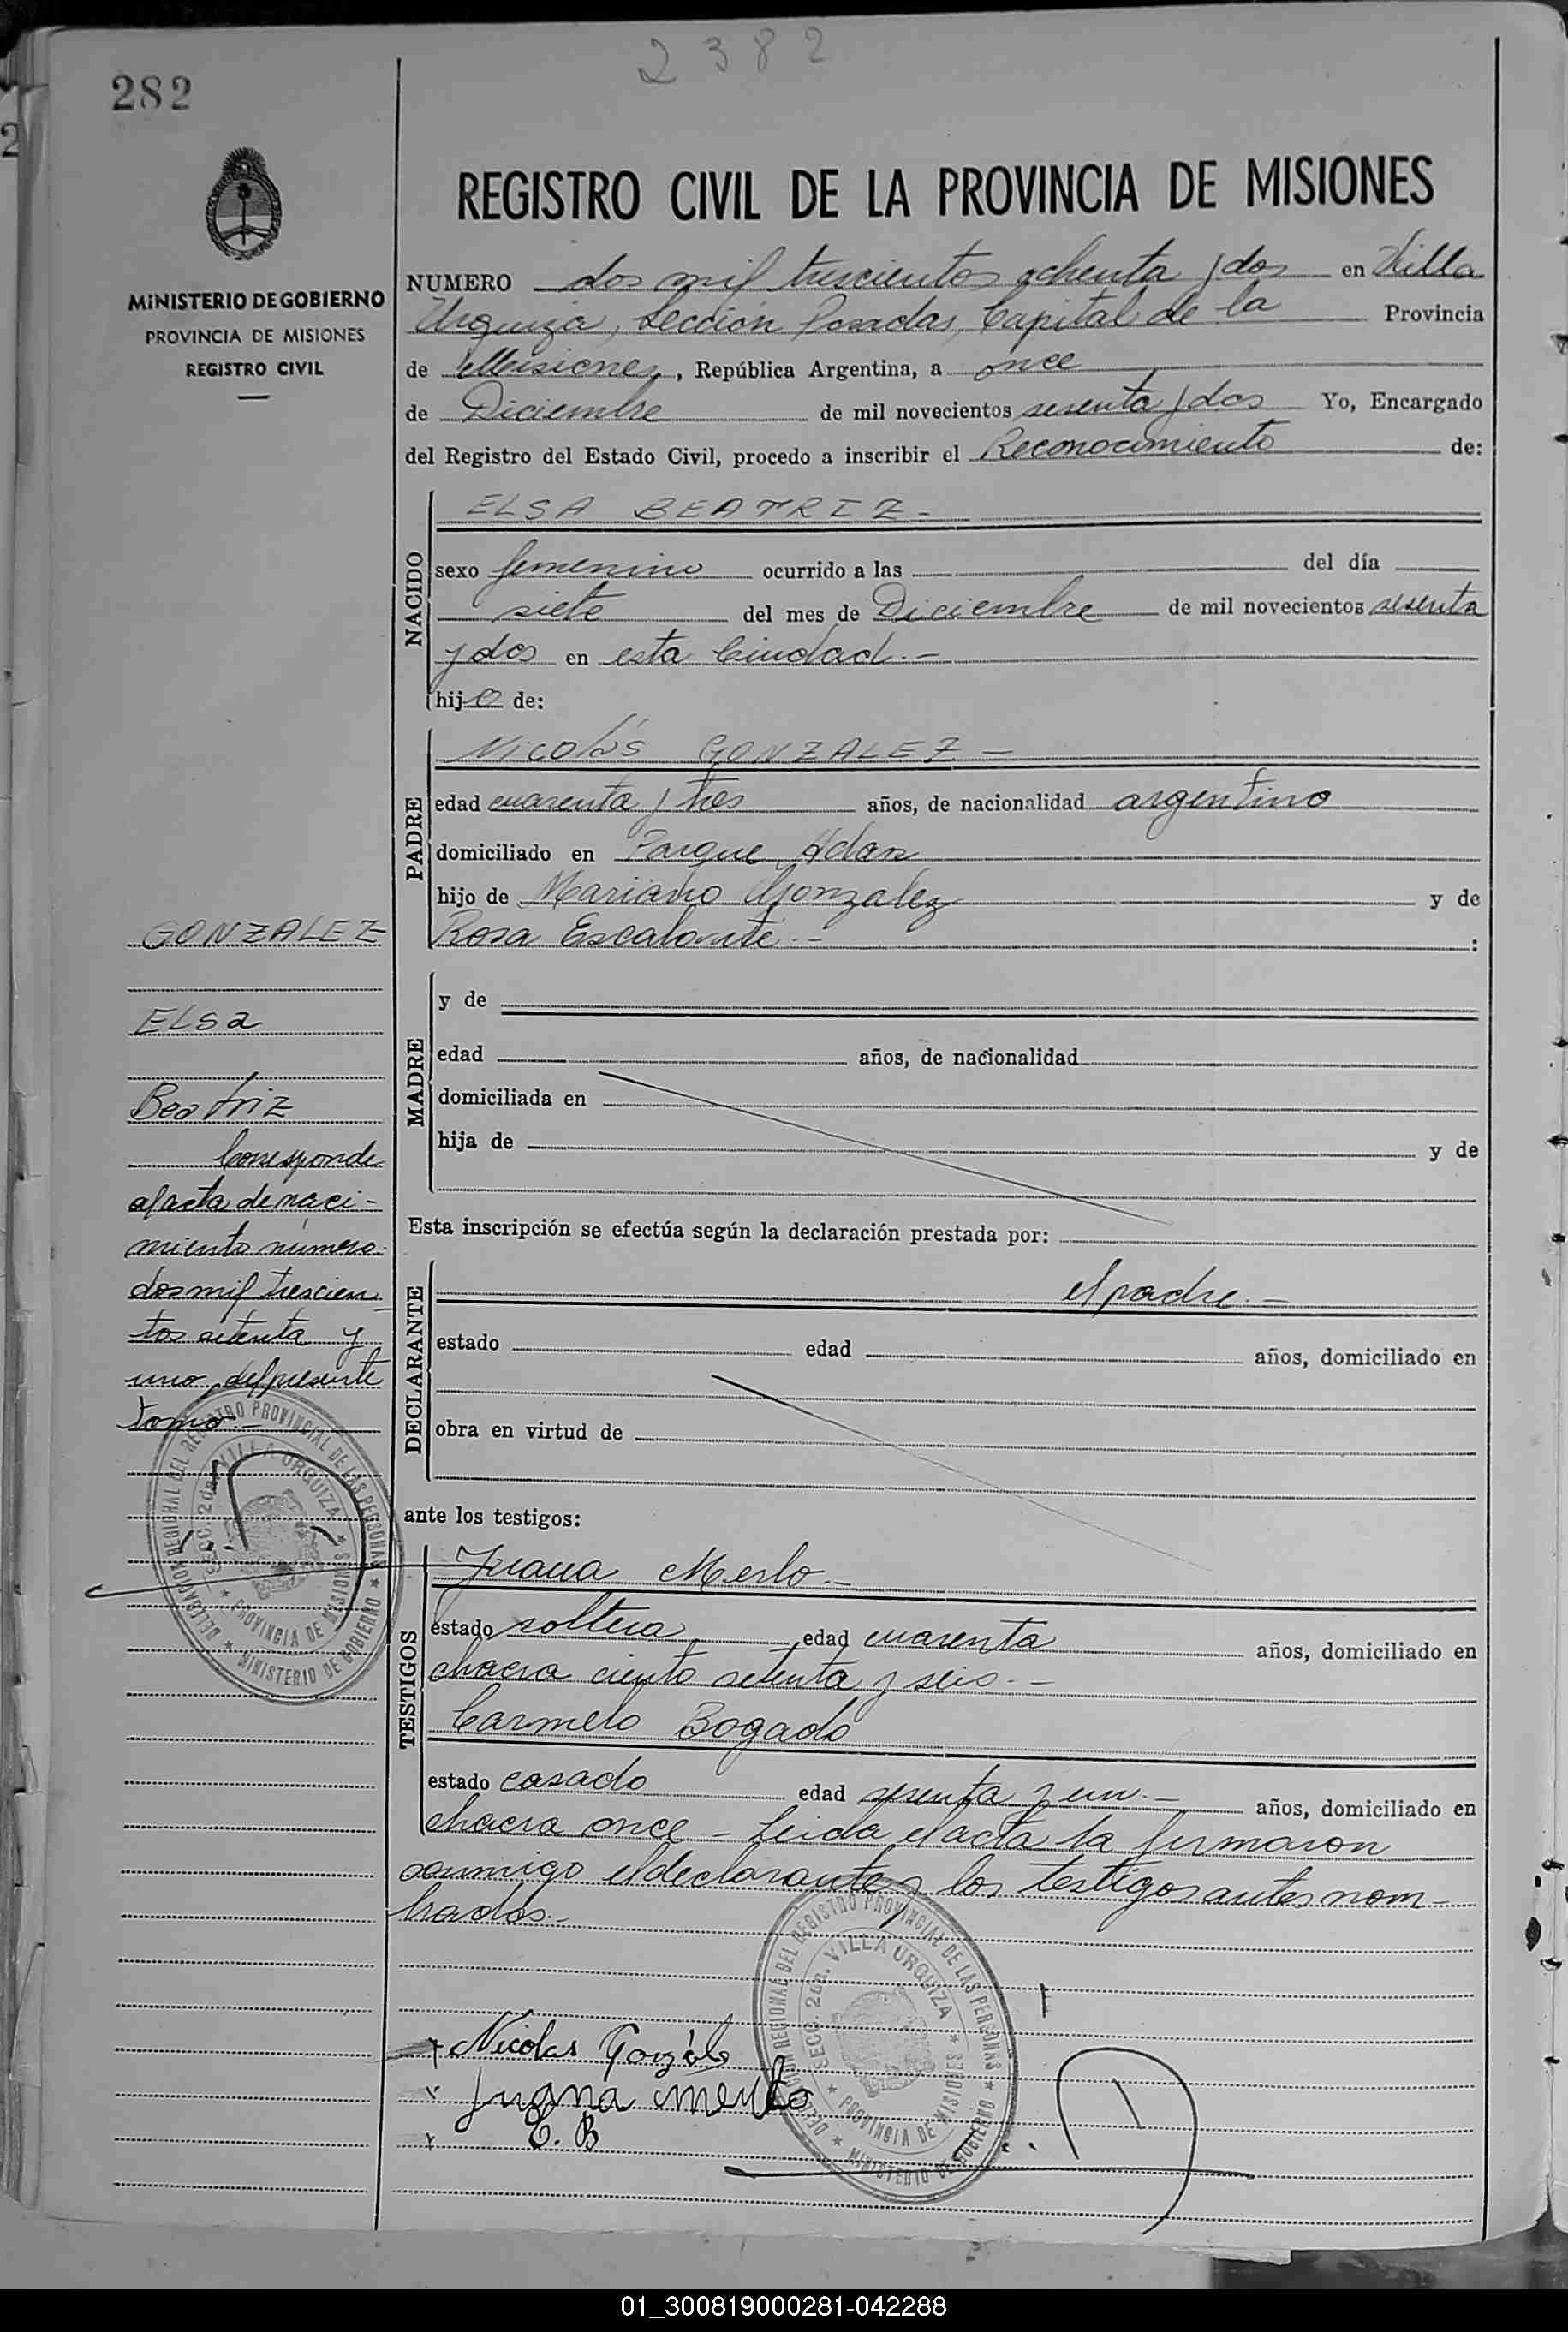 2382
282
REGISTRO CIVIL DE LA PROVINCIA DE MISIONES
MINISTERIO DE GOBIERNO
PROVINCIA DE MISIONES
REGISTRO CIVIL
NUMERO dos mil trescientos ochenta y dos en Villa
Urquiza, Sección Posadas, Capital de la Provincia
de Misiones, República Argentina, a once
de Diciembre de mil novecientos sesenta y dos Yo, Encargado
del Registro del Estado Civil, procedo a inscribir el Reconocimiento de:
NACIDO
ELSA BEATRIZ.-
sexo femenino ocurrido a las del día
siete del mes de Diciembre de mil novecientos sesenta
y dos en esta Ciudad.-
hija de:
PADRE
Nicolás GONZALEZ -
edad cuarenta y tres años, de nacionalidad argentino
domiciliado en Parque Adan
hijo de Mariano Gonzalez y de
Rosa Escalante.- :
MADRE
y de
edad años, de nacionalidad
domiciliada en
hija de y de
Esta inscripción se efectúa según la declaración prestada por:
DECLARANTE
el padre.-
estado edad años, domiciliado en
obra en virtud de
ante los testigos:
TESTIGOS
Juana Merlo.-
estado soltera edad cuarenta años, domiciliado en
chacra ciento setenta y seis.-
Carmelo Bogado
estado casado edad sesenta y un.- años, domiciliado en
chacra once - Leida el acta la firmaron
conmigo el declarante y los testigos antes nom-
brados.-
GONZALEZ
ELSa
Beatriz
Corresponde
al acta de naci-
miento número
dos mil trescien
tos setenta y
uno, del presente
tomo.-
DELEGACION REGIONAL DEL REGISTRO PROVINCIAL DE LAS PERSONAS * MINISTERIO DE GOBIERNO *
SECC. 2da. VILLA URQUIZA * PROVINCIA DE MISIONES *
Nicolas Gonzales
Juana merlo
C. B
DELEGACION REGIONAL DEL REGISTRO PROVINCIAL DE LAS PERSONAS * MINISTERIO DE GOBIERNO *
SECC. 2da. VILLA URQUIZA * PROVINCIA DE MISIONES *
01_300819000281-042288